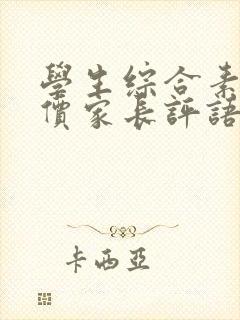 學生綜合素
價家長評語
卡西亞